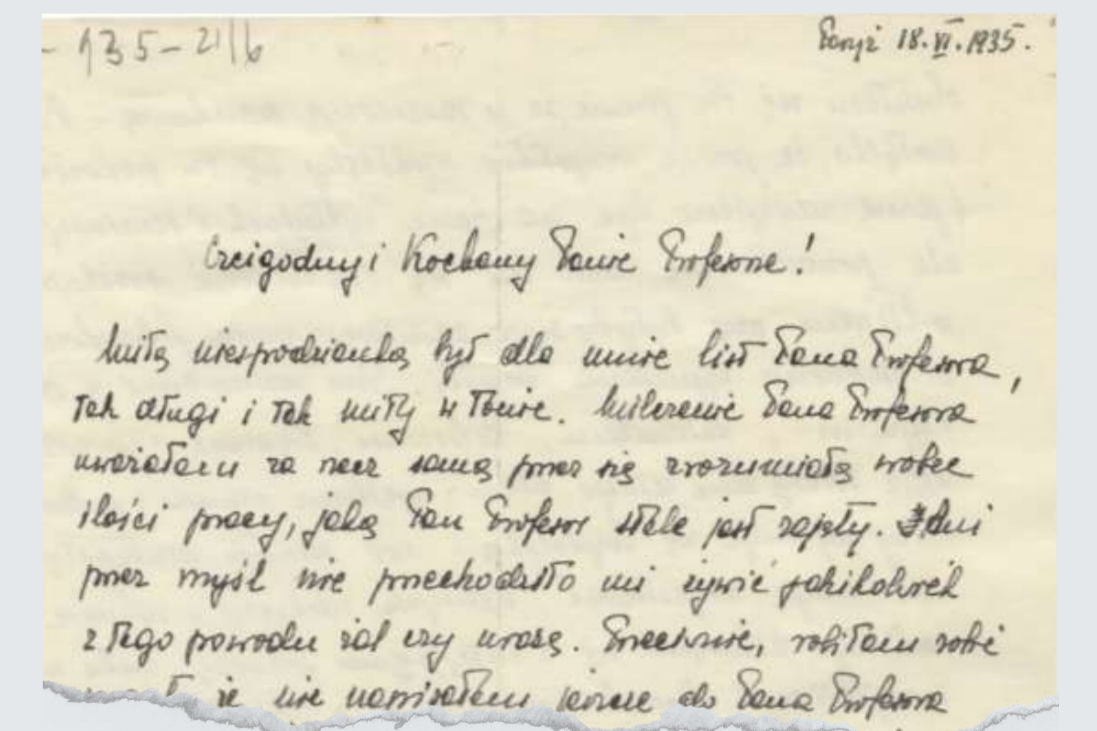 - 935 - 21/6
Paryż 18.VI.1935.
Czcigodny i Kochany Panie Profesorze!
Miłą niespodzianką był dla mnie list Pana Profesora,
tak długi i tak miły w tonie. Milczenie Pana Profesora
uważałam za rzecz samą przez się zrozumiałą wobec
ilości pracy, jaką Pan Profesor stale jest zajęty. Ani
przez myśl nie przechodziło mi żywić jakikolwiek
z tego powodu żal czy urazę. Przeciwnie, robiłam sobie
że nie napisałam jeszcze do Pana Profesora